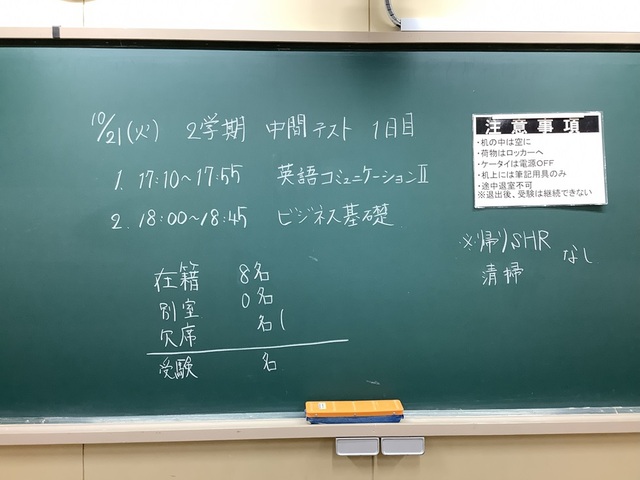 10/21(火) 2学期 中間テスト 1日目
1. 17:10~17:55 英語コミュニケーションⅡ
2. 18:00~18:45 ビジネス基礎
在籍 8名
別室 0名
欠席 名(
受験 名
注意事項
・机の中は空に
・荷物はロッカーへ
・ケータイは電源OFF
・机上には筆記用具のみ
・途中退室不可
※退出後、受験は継続できない
※帰りSHR なし
清掃